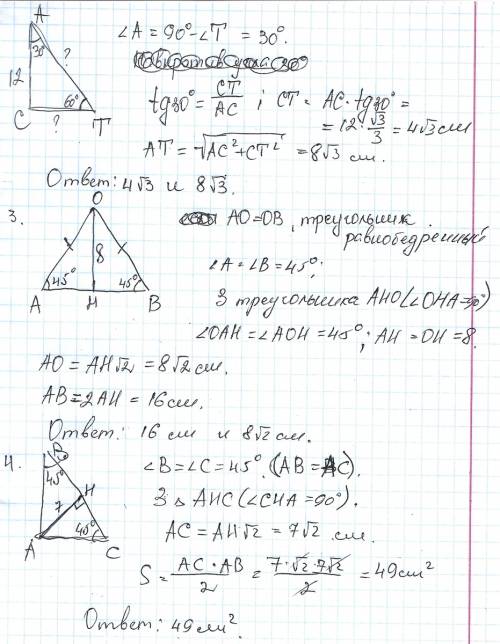 A
30°
?
12
60°
C
?
T
∠A = 90° - ∠T = 30°.
tg30° = CT/AC ; CT = AC · tg30° =
= 12 · √3/3 = 4√3 см
AT = √AC²+CT² = 8√3 см.
Ответ: 4√3 и 8√3.
3.
O
8
45°
45°
A
H
B
AO=OB, треугольник
равнобедренный
∠A = ∠B = 45°;
З треугольника AHO (∠OHA=90°)
∠OAH = ∠AOH = 45°; AH = OH = 8.
AO = AH√2 = 8√2 см.
AB = 2AH = 16 см.
Ответ: 16 см и 8√2 см.
4.
B
45°
H
7
45°
A
C
∠B = ∠C = 45°. (AB = AC).
З △ AHC (∠CHA = 90°).
AC = AH√2 = 7√2 см.
S = AC · AB/2 = 7·√2·7√2/2 = 49 см²
Ответ: 49 см².